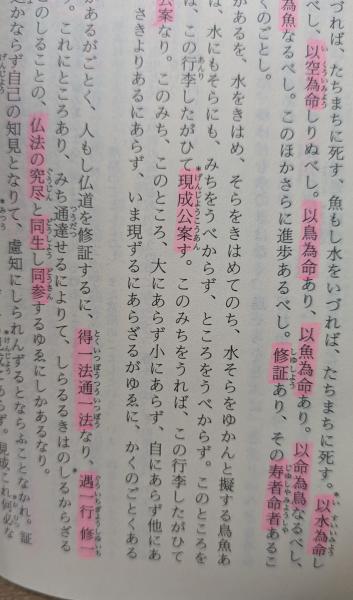 づれば、たちまちに死す、魚もし水をいづれば、たちまちに死す。以水為命し
べし、以空為命しりぬべし。以鳥為命あり、以魚為命あり。以命為鳥なるべし、
為魚なるべし。このほかさらに進歩あるべし。修証あり、その寿者命者あるこ
くのごとし。
があるを、水をきはめ、そらをきはめてのち、水そらをゆかんと擬する鳥魚あ
は、水にもそらにも、みちをうべからず、ところをうべからず。このところを
ば、この行李したがひて現成公案す。このみちをうれば、この行李したがひて
公案なり。このみち、このところ、大にあらず小にあらず、自にあらず他にあ
さきよりあるにあらず、いま現ずるにあらざるがゆゑに、かくのごとくある
があるがごとく、人もし仏道を修証するに、得一法通一法なり、遇一行修一
す。これにところあり、みち通達せるによりて、しらるるきはのしるからざる
このしることの、仏法の究尽と同生し同参するゆゑにしかあるなり。
かならず自己の知見となりて、慮知にしられんずるとならふことなかれ。証